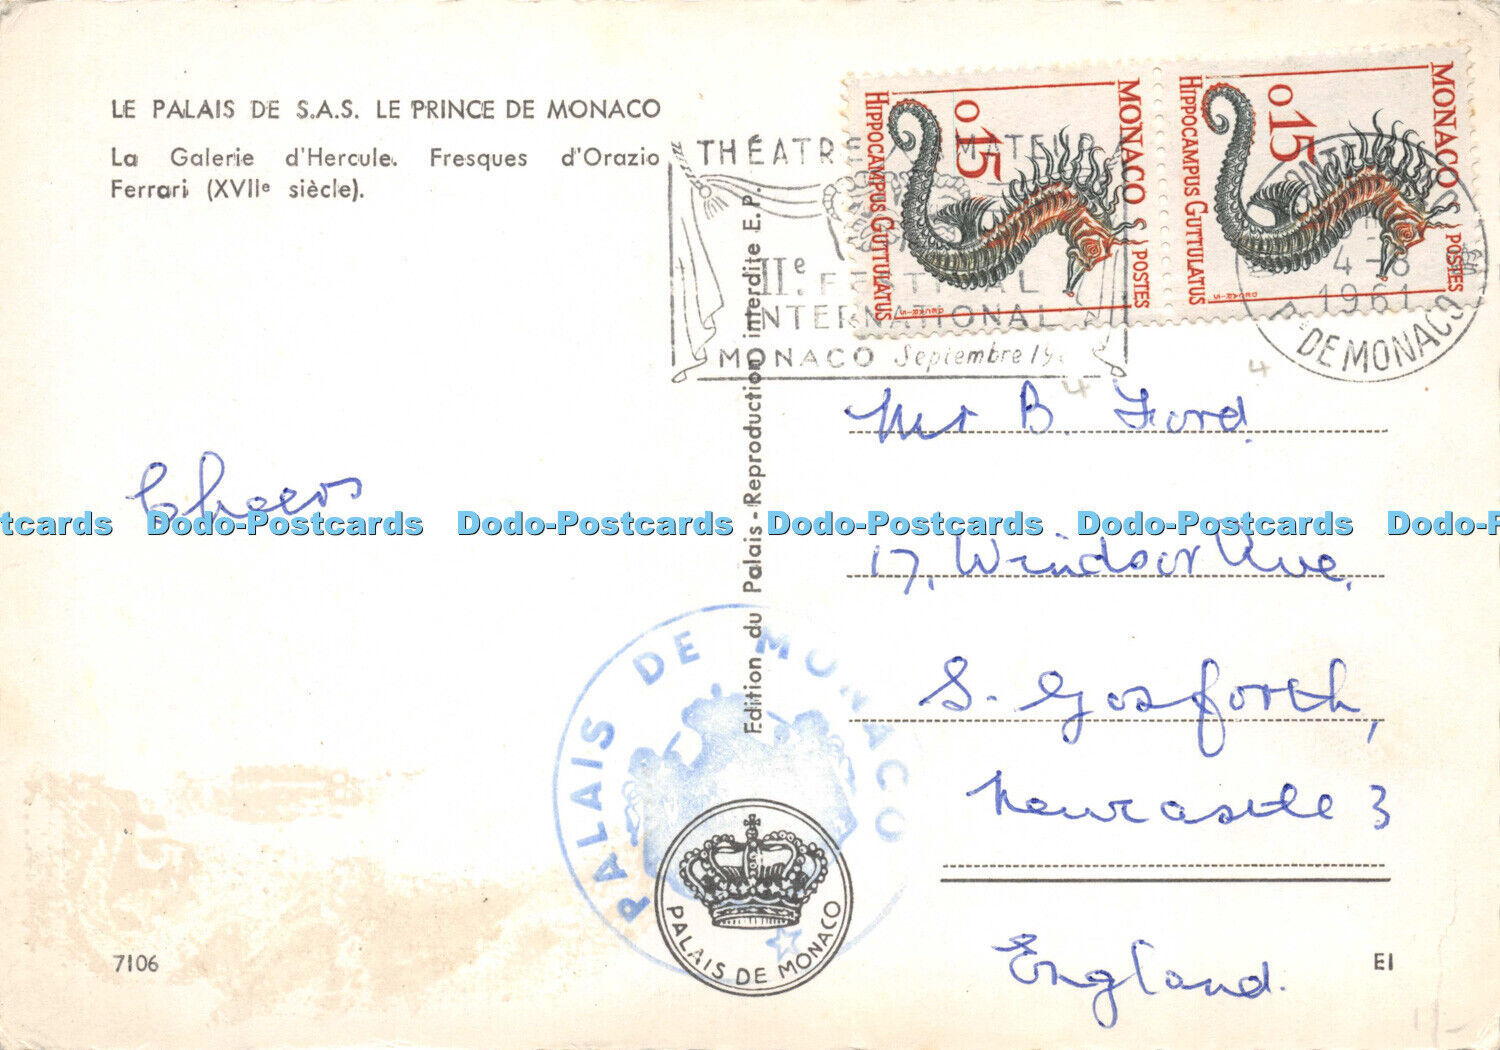 LE PALAIS DE S.A.S. LE PRINCE DE MONACO
La Galerie d'Hercule. Fresques d'Orazio
Ferrari (XVIIe siècle).
THÉATRE AMATEUR
IIe. FESTIVAL
INTERNATIONAL
MONACO Septembre 19
MONACO
0.15
HIPPOCAMPUS GUTTULATUS
POSTES
MONACO
0.15
HIPPOCAMPUS GUTTULATUS
POSTES
4-8
1961
PTÉ DE MONACO
Edition du Palais - Reproduction interdite E. P.
Cheers
Mr B. Ford
17, Windsor Ave,
S. Gosforth,
Newcastle 3
England.
tcards Dodo-Postcards Dodo-Postcards Dodo-Postcards Dodo-Postcards Dodo-P
PALAIS DE MONACO
PALAIS DE MONACO
7106
EI